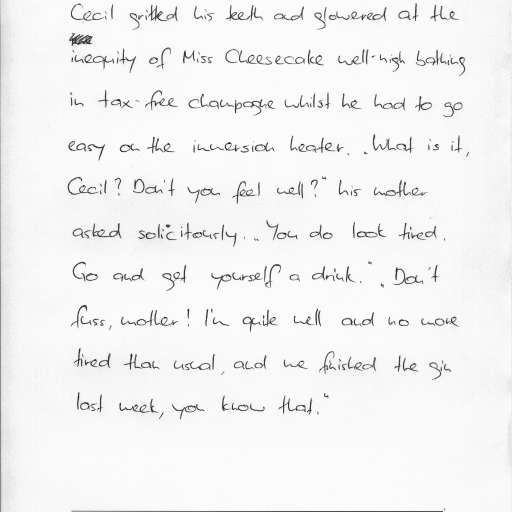 Cecil gritted his teeth and glowered at the
inequity of Miss Cheesecake well-nigh bathing
in tax-free champagne whilst he had to go
easy on the immersion heater. "What is it,
Cecil? Don't you feel well?" his mother
asked solicitously. "You do look tired.
Go and get yourself a drink." "Don't
fuss, mother! I'm quite well and no more
tired than usual, and we finished the gin
last week, you know that."